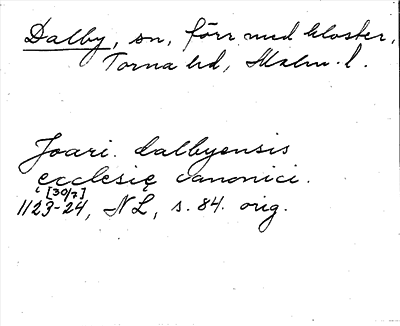 Dalby, sn, förr med kloster,
Torna hd, Malm. l.
Joari. dalbyensis
ecclesię canonici.
[30/7]
1123-24, NL, s. 84. orig.